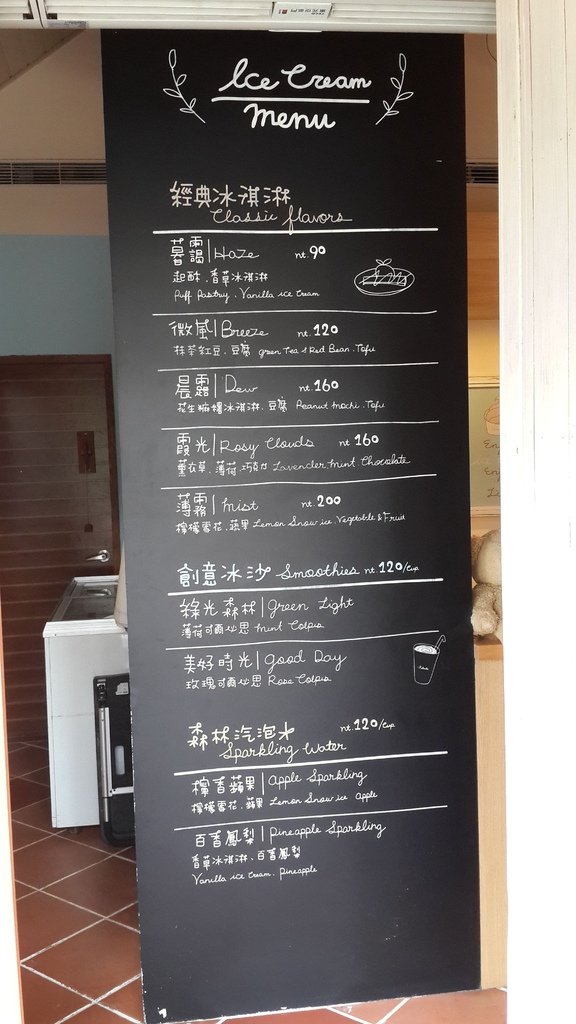 Ice Cream
menu
經典冰淇淋
Classic flavors
暮靄|Haze nt.90
起酥．香草冰淇淋
Puff Pastry . Vanilla ice cream
微風|Breeze nt.120
抹茶紅豆．豆腐 green Tea & Red Bean . Tofu
晨露|Dew nt.160
花生麻糬冰淇淋．豆腐 Peanut mochi . Tofu
霞光|Rosy Clouds nt 160
薰衣草．薄荷．巧克力 Lavender.mint.Chocolate
薄霧|mist nt.200
檸檬雪花．蔬果 Lemon Snow ice.Vegetable & Fruit
創意冰沙 Smoothies nt.120/cup
綠光森林|green Light
薄荷可爾必思 mint Calpis
美好時光|good Day
玫瑰可爾必思 Rose Calpis
森林汽泡水 nt.120/cup
Sparkling Water
檸香蘋果|apple Sparkling
檸檬雪花．蘋果 Lemon Snow ice apple
百香鳳梨|pineapple Sparkling
香草冰淇淋．百香鳳梨
Vanilla ice cream . pineapple